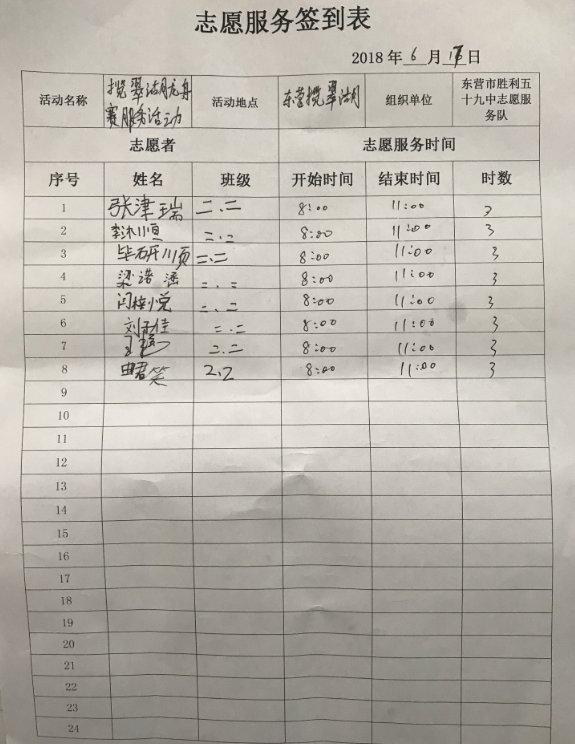 志愿服务签到表
2018 年 6 月 日
活动名称 揽翠湖龙舟 活动地点 东营揽翠湖 组织单位 东营市胜利五
赛服务活动 十九中志愿服
务队
志愿者 志愿服务时间
序号 姓名 班级 开始时间 结束时间 时数
1 张津瑞 二.二 8:00 11:00 3
2 二.二 8:00 11:00 3
3 毕研顺 二.二 8:00 11:00 3
4 梁浩 二.二 8:00 11:00 3
5 闫梓悦 二.二 8:00 11:00 3
6 刘 佳 二.二 8:00 11:00 3
7 二.二 8:00 11:00 3
8 曲君笑 2.2 8:00 11:00 3
9
10
11
12
13
14
15
16
17
18
19
20
21
22
23
24